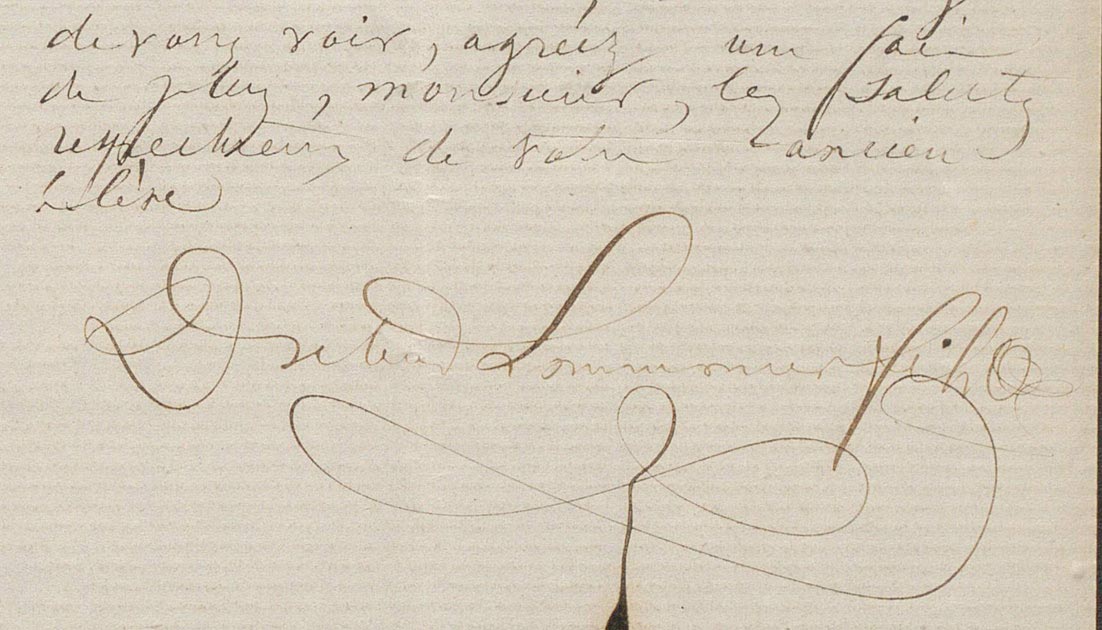 de vous voir, agréez une fois
de plus, monsieur, les saluts
respectueux de votre ancien
élève